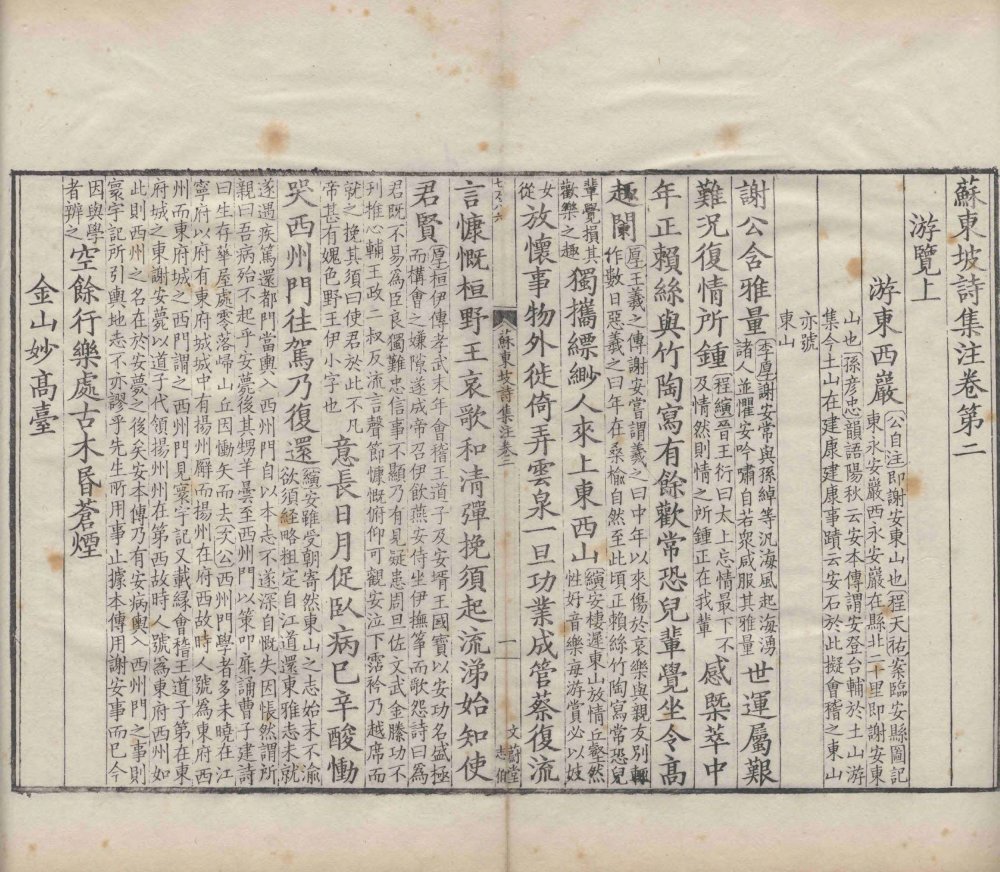 蘇東坡詩集注卷第二
游覽上
游東西巖公自注即謝安東山也程天祐案臨安縣圖記
東永安巖西永安巖在縣北二十里即謝安東
山也孫彦忠韻語陽秋云安本傳謂安登台輔於土山游
集今土山在建康建康事蹟云安石於此擬會稽之東山
亦號
東山
謝公含雅量李厚謝安常與孫綽等汎海風起海湧
諸人並懼安吟嘯自若衆咸服其雅量世運屬艱
難況復情所鍾程縯晉王衍曰太上忘情最下不
及情然則情之所鍾正在我輩感槩萃中
年正賴絲與竹陶寫有餘歡常恐兒輩覺坐令高
趣闌厚王羲之傳謝安嘗謂羲之曰中年以來傷於哀樂與親友别輒
作數日惡羲之曰年在桑榆自然至此頃正賴絲竹陶寫常恐兒
輩覺損其
歡樂之趣獨攜縹緲人來上東西山縯安棲遲東山放情丘壑然
性好音樂每游賞必以妓
女
從放懷事物外徙倚弄雲泉一旦功業成管蔡復流
蘇東坡詩集注卷二
一
文蔚堂
言慷慨桓野王哀歌和清彈挽須起流涕始知使
君賢厚桓伊傳孝武末年會稽王道子及安壻王國寶以安功名盛極
而構會之嫌隙遂成帝召伊飲燕安侍坐伊撫筝而歌怨詩曰爲
君既不易爲臣良獨難忠信事不顯乃有見疑患周旦佐文武金縢功不
刋推心輔王政二叔反流言聲節慷慨俯仰可觀安泣下霑衿乃越席而
就之挽其須曰使君於此不凡
帝甚有媿色野王伊小字也意長日月促臥病已辛酸慟
哭西州門往駕乃復還縯安雖受朝寄然東山之志始末不渝
欲須經略粗定自江道還東雅志未就
遂遇疾篤還都門當輿入西州門自以本志不遂深自慨失因悵然謂所
親曰吾病殆不起乎安薨後其甥羊曇至西州門以策叩扉誦曹子建詩
曰生存華屋處零落歸山丘因慟哭而去次公西州門學者多未曉在江
寧府以府有東府城城中有揚州廨而揚州在府西故時人號爲東府西
州而東府城之西門謂之西州門見寰宇記又載緣會稽王道子第在東
府城之東謝安薨以道子代領揚州州在第西故時人號爲東府西州如
此則西州之名在於安薨之後矣安本傳乃有安病輿入西州門之事則
寰宇記所引輿地志不亦謬乎先生所用事止據本傳用謝安事而已今
因與學
者辨之空餘行樂處古木昏蒼煙
金山妙高臺